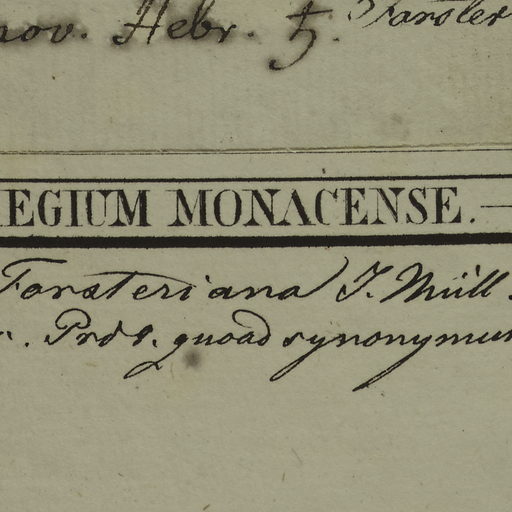 nov. Hebr. 5. Forster
EGIUM MONACENSE.
Forsteriana J. Müll.
Prod. quoad synonymum